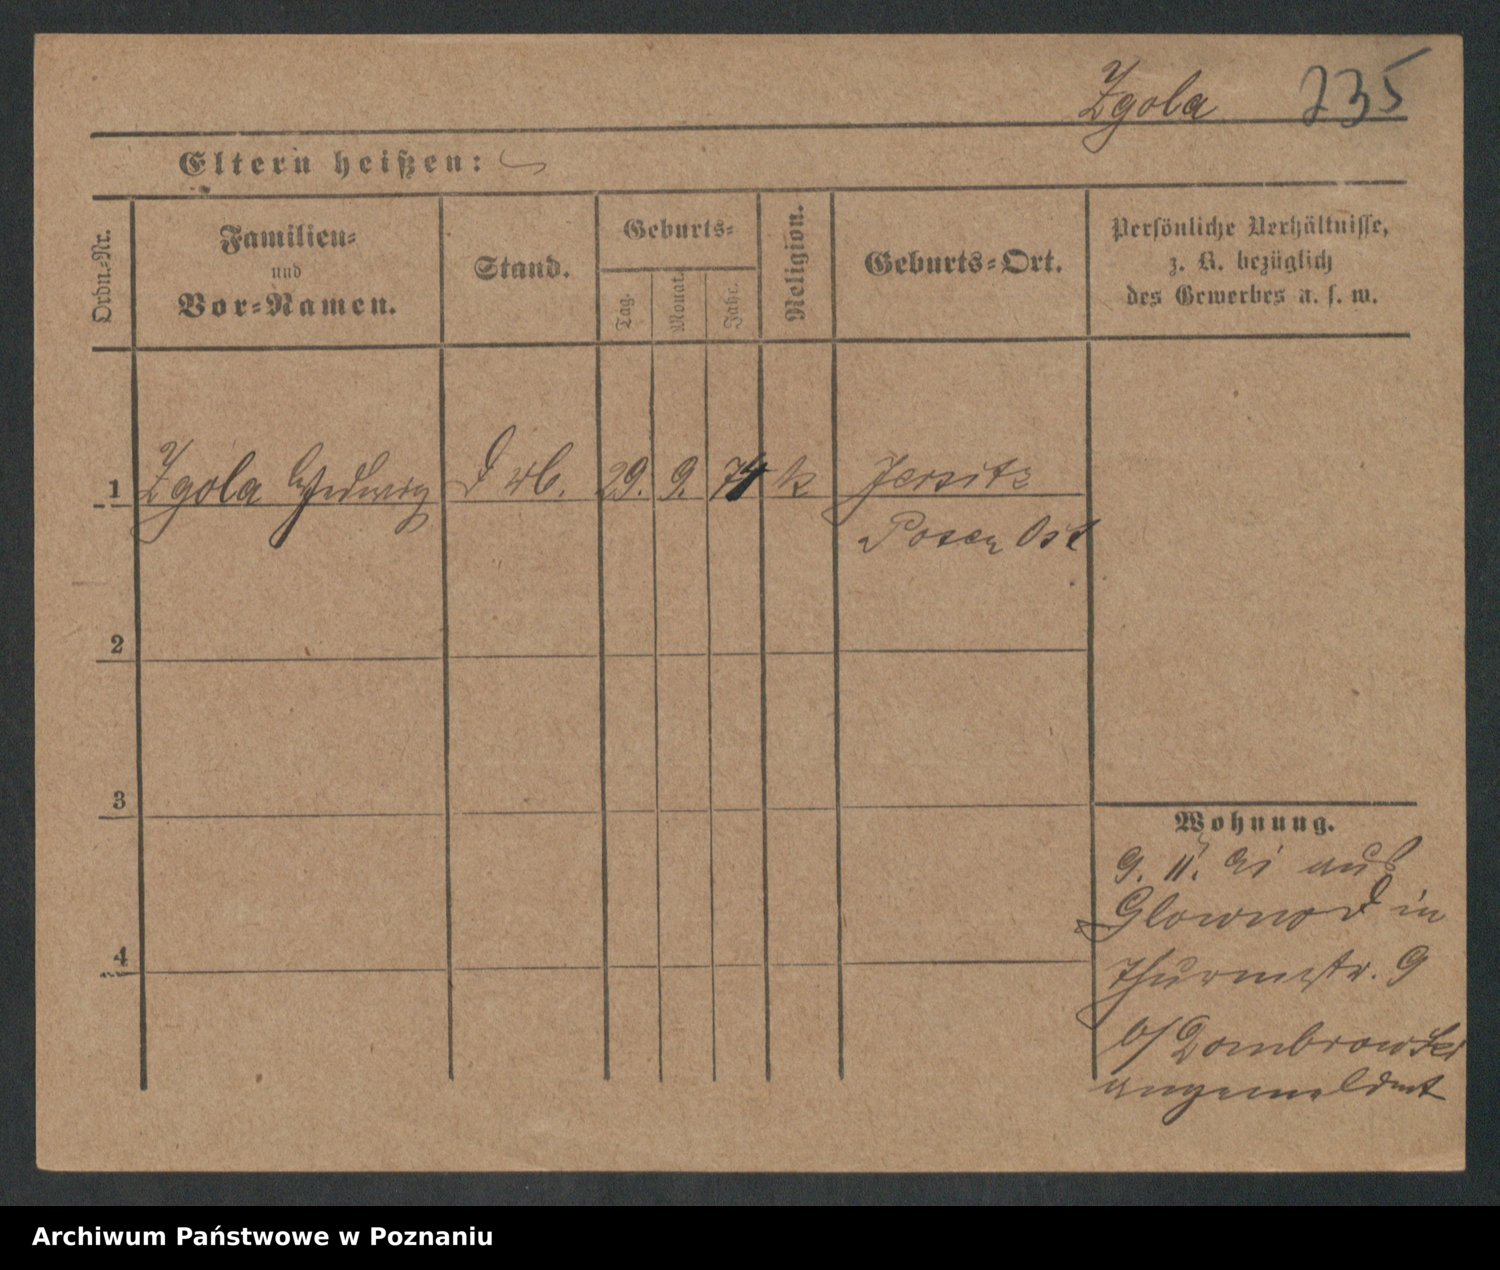 Zgola 235
Eltern heißen:
Ordn.-Nr.
Familien-
und
Vor-Namen.
Stand.
Geburts-
Tag.
Monat.
Jahr.
Religion.
Geburts-Ort.
Persönliche Verhältnisse,
z. B. bezüglich
des Gewerbes u. s. w.
1 Zgola Hedwig 29. 9. 74 k Jersitz
Posen Ost
2
3
4
Wohnung.
9. 11. 91 aus
Glowno in
Thurmstr. 9
b/ Dombrowski
angemeldet
Archiwum Państwowe w Poznaniu